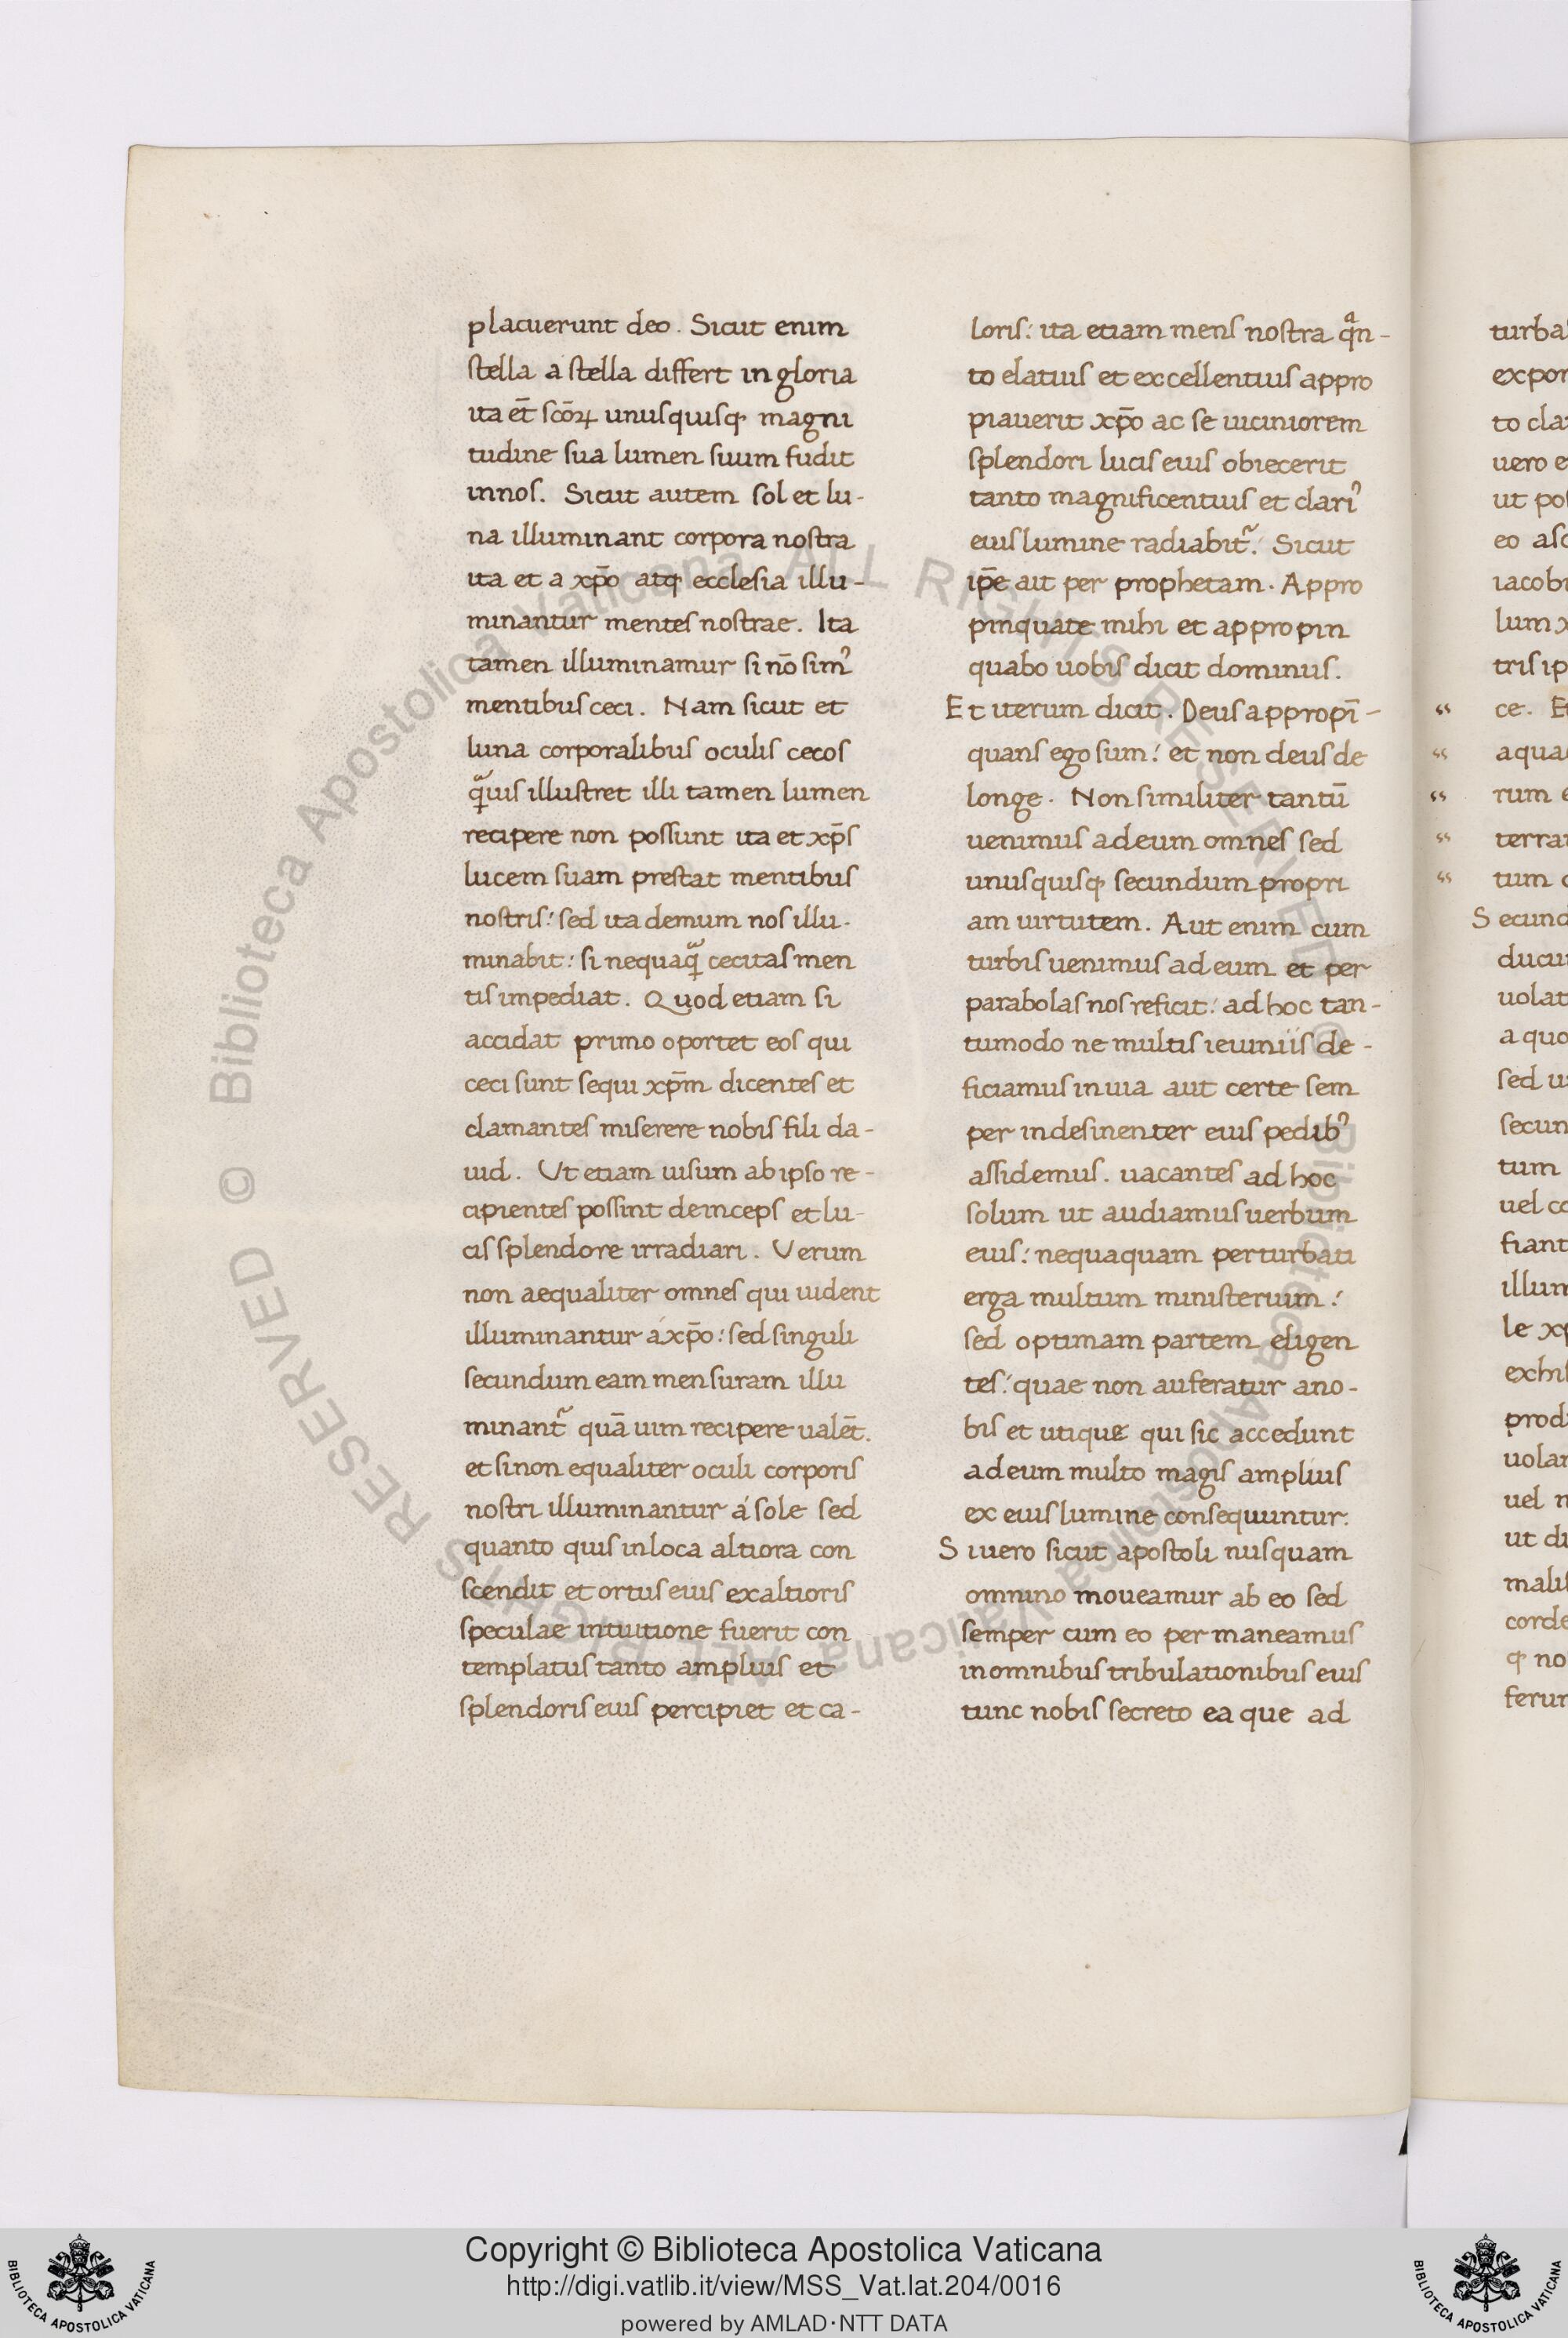 placuerunt deo. Sicut enim
stella a stella differt in gloria
ita et̄ scōꝝ unusquisqꝫ magni
tudine sua lumen suum fudit
in nos. Sicut autem sol et lu-
na illuminant corpora nostra
ita et a xp̄o atqꝫ ecclesia illu-
minantur mentes nostrae. Ita
tamen illuminamur si nō sim᾿
mentibus ceci. Nam sicut et
luna corporalibus oculis cecos
qᵃuis illustret illi tamen lumen
recipere non possunt ita et xp̄s
lucem suam prestat mentibus
nostris: sed ita demum nos illu-
minabit: si nequaqᵃ cecitas men
tis impediat. Quod etiam si
accidat primo oportet eos qui
ceci sunt sequi xp̄m dicentes et
clamantes miserere nobis fili da-
uid. Ut etiam uisum ab ipso re-
cipientes possint deinceps et lu-
cis splendore irradiari. Verum
non aequaliter omnes qui uident
illuminantur á xp̄o: sed singuli
secundum eam mensuram illu
minant᷑ quā uim recipere ualēt.
et si non equaliter oculi corporis
nostri illuminantur á sole sed
quanto quis in loca altiora con
scendit et ortus eius ex altioris
speculae intuitione fuerit con
templatus tanto amplius et
splendoris eius percipiet et ca-
loris: ita etiam mens nostra qᵃn-
to elatius et excellentius appro
piauerit xp̄o ac se uiciniorem
splendori lucis eius obiecerit
tanto magnificentius et clari᾿
eius lumine radiabit᷑: Sicut
ip̄e ait per prophetam. Appro
pinquate mihi et appropin
quabo uobis dicit dominus.
Et iterum dicit. Deus appropī-
quans ego sum: et non deus de
longe. Non similiter tantū
uenimus ad eum omnes sed
unusquisqꝫ secundum propri
am uirtutem. Aut enim cum
turbis uenimus ad eum et per
parabolas nos reficit: ad hoc tan-
tumodo ne multis ieiuniis de-
ficiamus in uia aut certe sem
per indesinenter eius pedib᾿
assidemus. uacantes ad hoc
solum ut audiamus uerbum
eius: nequaquam perturbati
erga multum ministerium:
sed optimam partem eligen
tes: quae non auferatur a no-
bis et utique qui sic accedunt
ad eum multo magis amplius
ex eius lumine consequuntur.
Si uero sicut apostoli nusquam
omnino moueamur ab eo sed
semper cum eo permaneamus
in omnibus tribulationibus eius
tunc nobis secreto ea que ad
turba
expor
to cla
uero e
ut pos
eo asc
iacobi
lum x
tris ip
ce. E
aqua
rum e
terra
tum
Secund
ducu
uolat
a quo
sed u
secun
tum
uel co
fiant
illum
le xp
exhi
prod
uolan
uel n
ut di
malis
corde
qꝫ no
ferun
© Biblioteca Apostolica Vaticana ALL RIGHTS RESERVED © Biblioteca Apostolica Vaticana ALL RIGHTS RESERVED
Copyright © Biblioteca Apostolica Vaticana
http://digi.vatlib.it/view/MSS_Vat.lat.204/0016
powered by AMLAD·NTT DATA
BIBLIOTECA APOSTOLICA VATICANA
BIBLIOTECA APOSTOLICA VATICANA